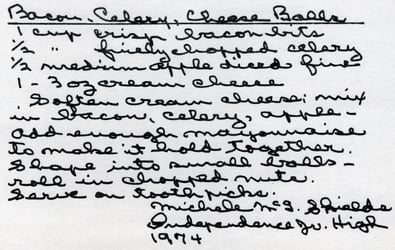 Bacon, Celery, Cheese Balls
1 cup crisp bacon bits
1/2 " finely chopped celery
1/2 medium apple diced fine
1 - 3 oz cream cheese
Soften cream cheese; mix
in bacon, celery, apple -
add enough mayonnaise
to make it hold together.
Shape into small balls -
roll in chopped nuts.
Serve on toothpicks.
Michele McG. Shields
Independence Jr. High
1974